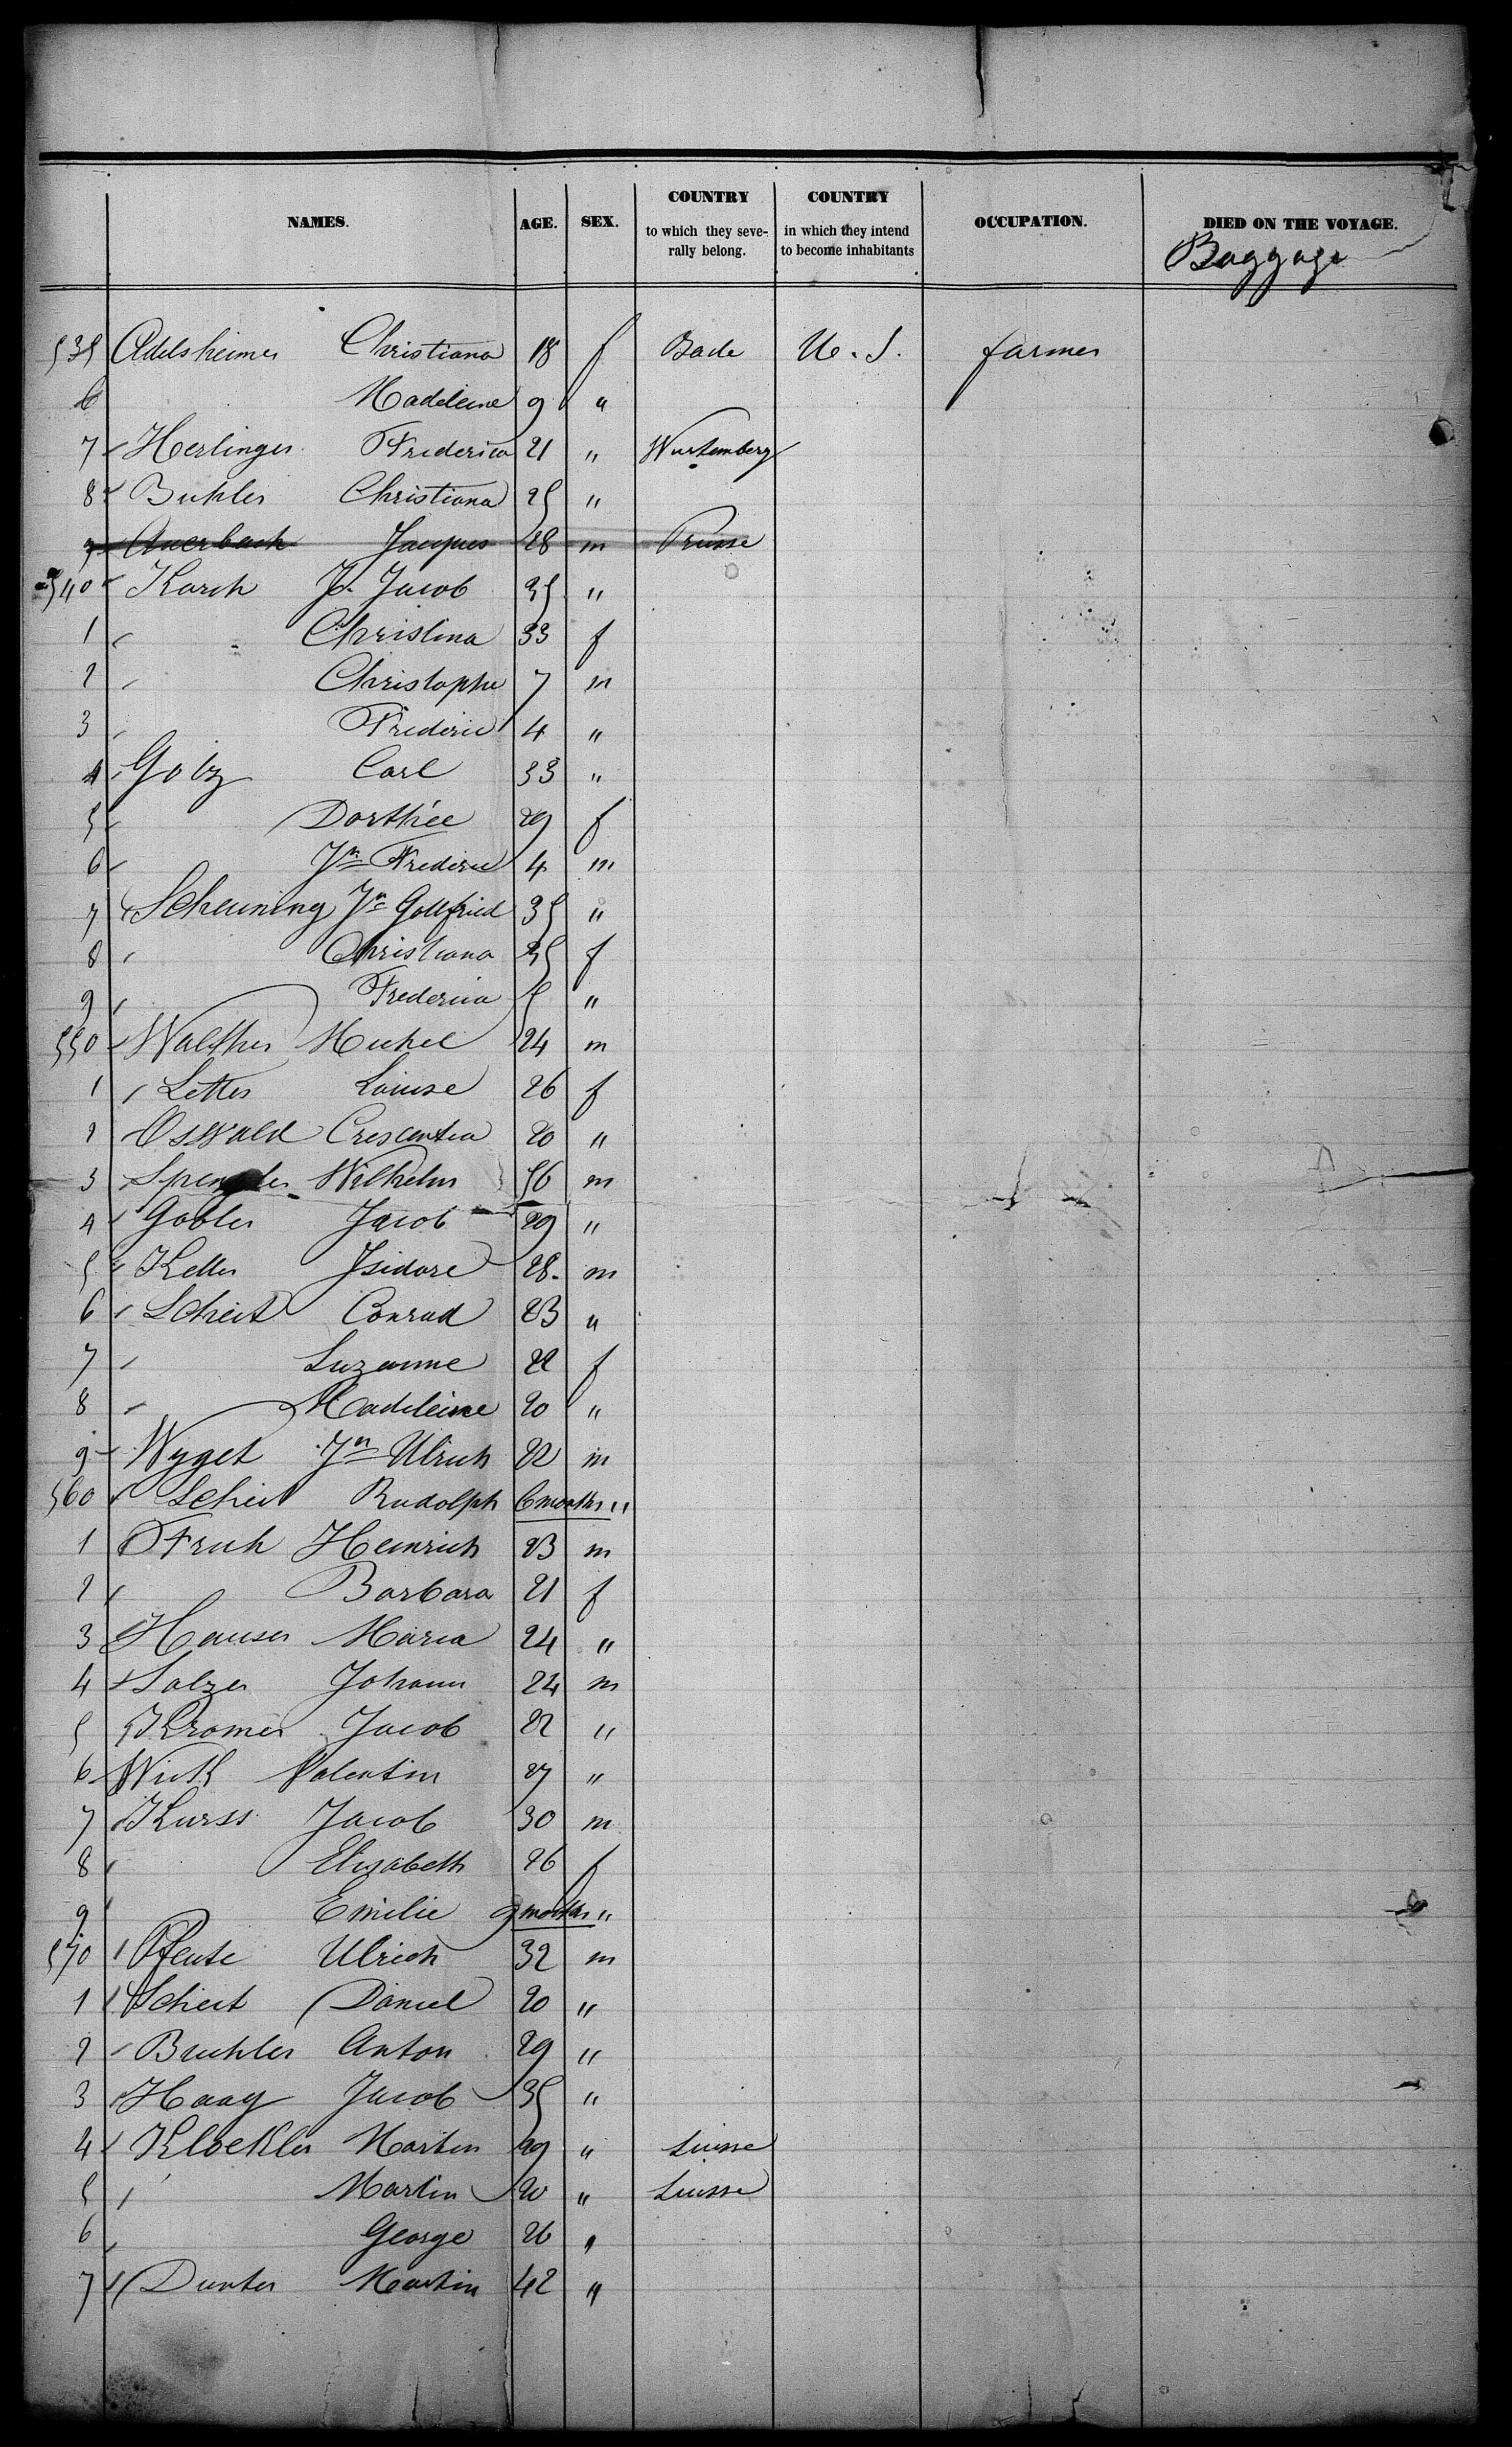 NAMES. AGE. SEX. COUNTRY to which they seve- rally belong. COUNTRY in which they intend to become inhabitants OCCUPATION. DIED ON THE VOYAGE.
Baggage
535 Adelsheimer Christiana 18 f Bade U. S. farmer
6 Madeleine 9 "
7 Herlinger Frederica 21 " Wurtemberg
8 Buhler Christiana 25 "
9 Auerbach Jacques 28 m Prusse
540 Karch J. Jacob 35 "
1 " Christina 33 f
2 " Christophe 7 m
3 " Frederic 4 "
4 Golz Carl 33 "
5 " Dorthée 29 f
6 " Jn Frederic 4 m
7 Scheuning Jn Gottfried 35 "
8 " Christiana 35 f
9 " Frederica 5 "
550 Walther Michel 24 m
1 Letter Louise 26 f
2 Oswald Crescentia 20 "
3 Spengler Wilhelm 56 m
4 Gobler Jacob 29 "
5 Keller Isidore 28. m
6 Scheit Conrad 23 "
7 " Suzanne 22 f
8 " Madeleine 20 "
9 Wyget Jn Ulrich 22 m
560 Scheit Rudolph 6 months "
1 Fruh Heinrich 23 m
2 " Barbara 21 f
3 Hauser Maria 24 "
4 Salzer Johann 24 m
5 Kromer Jacob 22 "
6 Wick Valentin 27 "
7 Kurss Jacob 30 m
8 " Elisabeth 26 f
9 " Emilie 9 months "
570 Pfeute Ulrich 32 m
1 Scheit Daniel 20 "
2 Bruhler Anton 29 "
3 Haag Jacob 35 "
4 Kloekler Martin 49 " Suisse
5 " Martin 20 " Suisse
6 " George 26 "
7 Dunter Martin 42 "